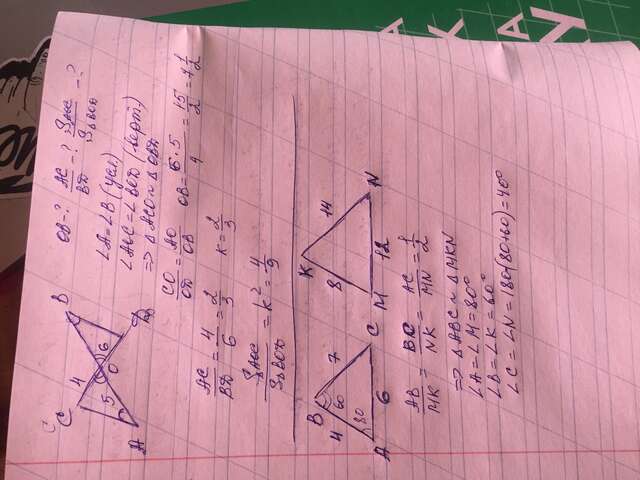 C B
C 4
5 O 6
A D
OB-? AC/BD-? S△AOC/S△BOD-?
∠A=∠B (усл)
∠AOC=∠BOD (верт.)
=> △ACO ~ △OBD
CO/OD = AO/OB OB = 6·5/4 = 15/2 = 7 1/2
AC/BD = 4/6 = 2/3 k = 2/3
S△AOC/S△BOD = k² = 4/9
B K
4 60 7 8 14
80
A 6 C M 12 N
AB/MK = BC/NK = AC/MN = 1/2
=> △ABC ~ △MKN
∠A=∠M=80°
∠B=∠K=60°
∠C=∠N=180-(80+60)=40°
A
K
A
У